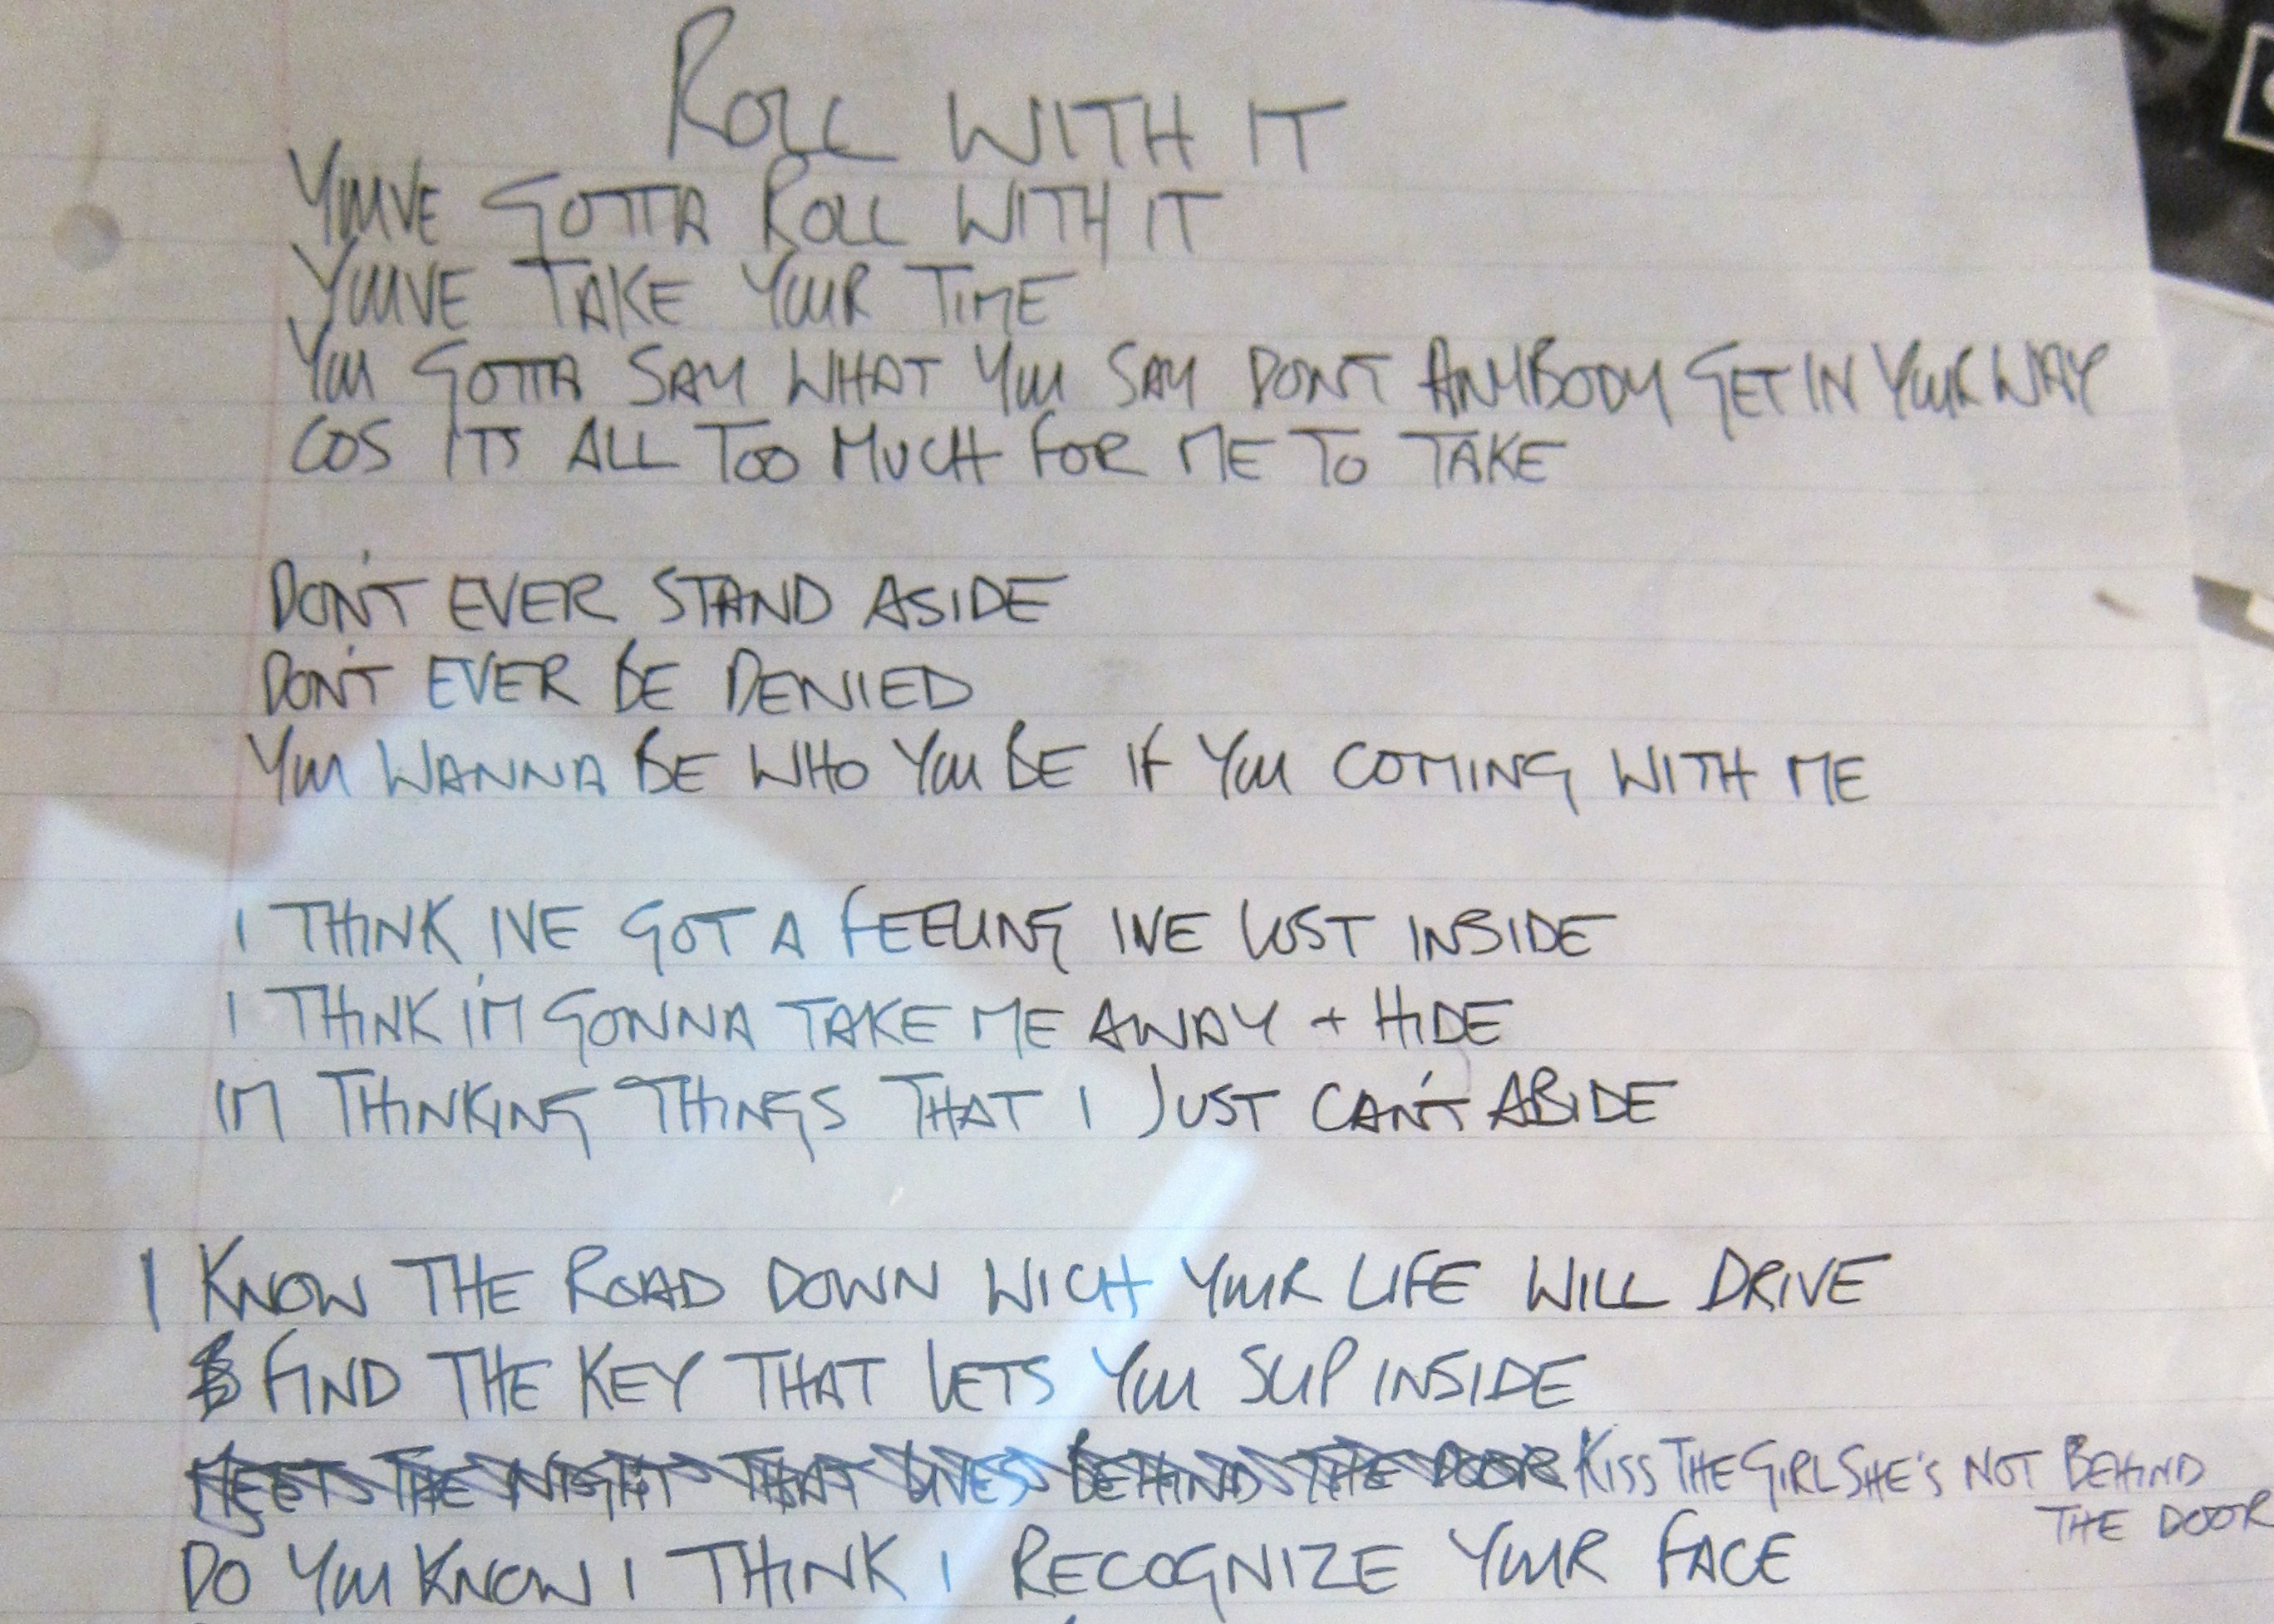 ROLL WITH IT
YOUVE GOTTA ROLL WITH IT
YOUVE TAKE YOUR TIME
YOU GOTTA SAY WHAT YOU SAY DONT ANYBODY GET IN YOUR WAY
COS ITS ALL TOO MUCH FOR ME TO TAKE
DON'T EVER STAND ASIDE
DON'T EVER BE DENIED
YOU WANNA BE WHO YOU BE IF YOU COMING WITH ME
I THINK IVE GOT A FEELING IVE LOST INSIDE
I THINK I'M GONNA TAKE ME AWAY + HIDE
IM THINKING THINGS THAT I JUST CAN'T ABIDE
I KNOW THE ROAD DOWN WICH YOUR LIFE WILL DRIVE
FIND THE KEY THAT LETS YOU SLIP INSIDE
MEETS THE NIGHT THAT LIVES BEHIND THE DOOR KISS THE GIRL SHE'S NOT BEHIND
THE DOOR
DO YOU KNOW I THINK I RECOGNIZE YOUR FACE